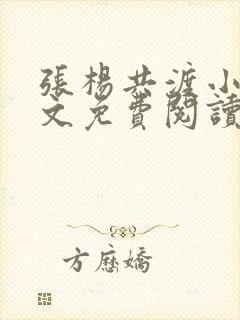 張楊共渡小
文免費閱讀
方應嬌